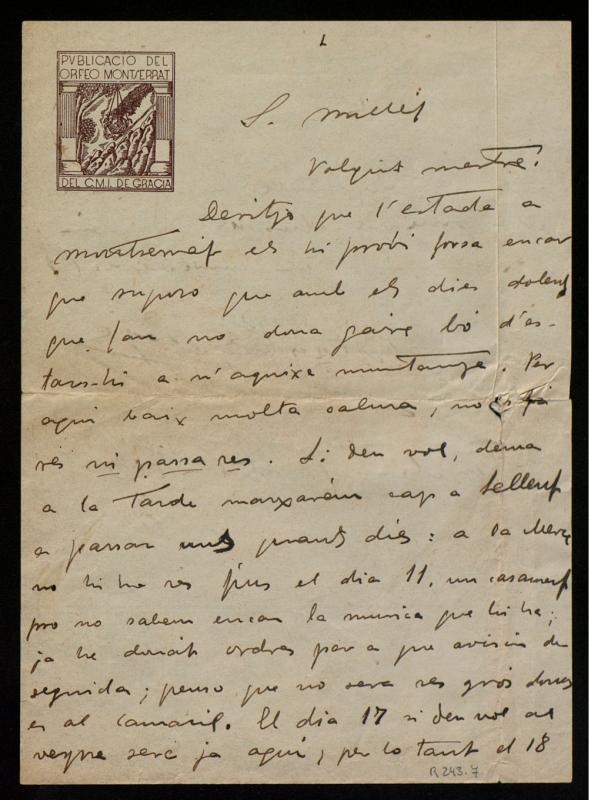 1
PVBLICACIO DEL
ORFEO MONTSERRAT
DEL C.M.I. DE GRACIA
S. Millet
Volgut mestre.
Desitjo que l'estada a
montserrat els hi probi forsa encar
que suposo que amb els dies dolents
que fan no dona gaire bó d'es-
tars-hi a n'aquixa muntanya. Per
aqui baix molta calma, no es fa
rés ni passa res. Si Deu vol, dema
a la tarde marxarém cap a Sellent
a passar uns quants dies: a la Mercé
no hi ha res fins el dia 11, un casament
pro no sabem encar la musica que hi ha;
ja he donat ordres per a que avisin de
seguida; penso que no sera res grós doncs
es al camaril. El dia 17 si Deu vol al
vespre seré ja aquí, per lo tant el 18
R 243.7